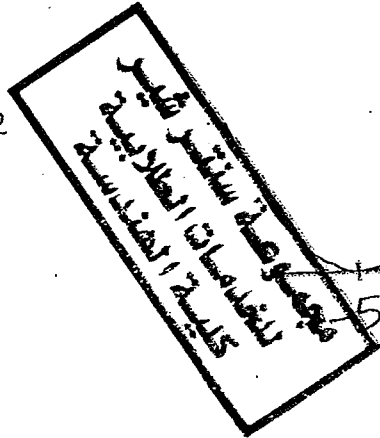 مجموعة سنتر شير
للخدمات الطلابية
كلية الهندسة
5